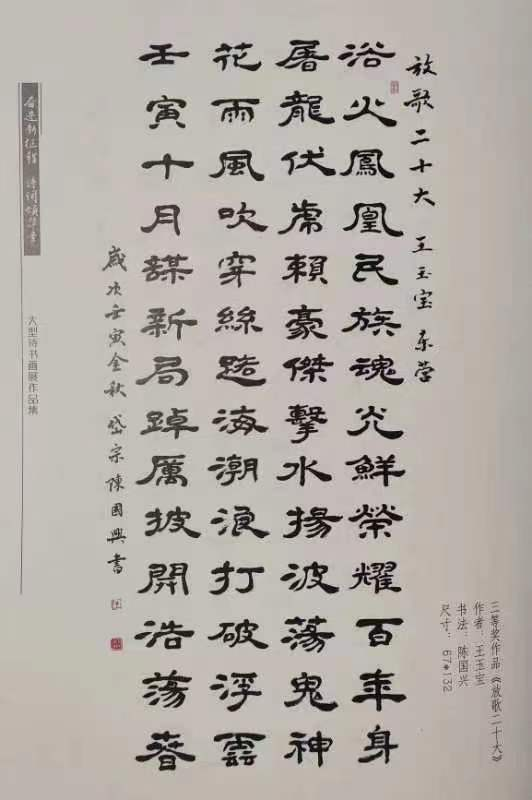 三等奖作品《放歌二十大》
作者：王玉宝
书法：陈国兴
尺寸：67*132
放歌二十大 王玉宝 东营
浴火鳳凰民族魂光鮮榮耀百年身
屠龍伏虎賴豪傑擊水揚波蕩鬼神
花雨風吹穿絲路海潮浪打破浮雲
壬寅十月謀新局踔厲披開浩蕩春
歲次壬寅金秋岱宗陳國興書
奋进新征程 诗词颂华章
大型诗书画展作品集